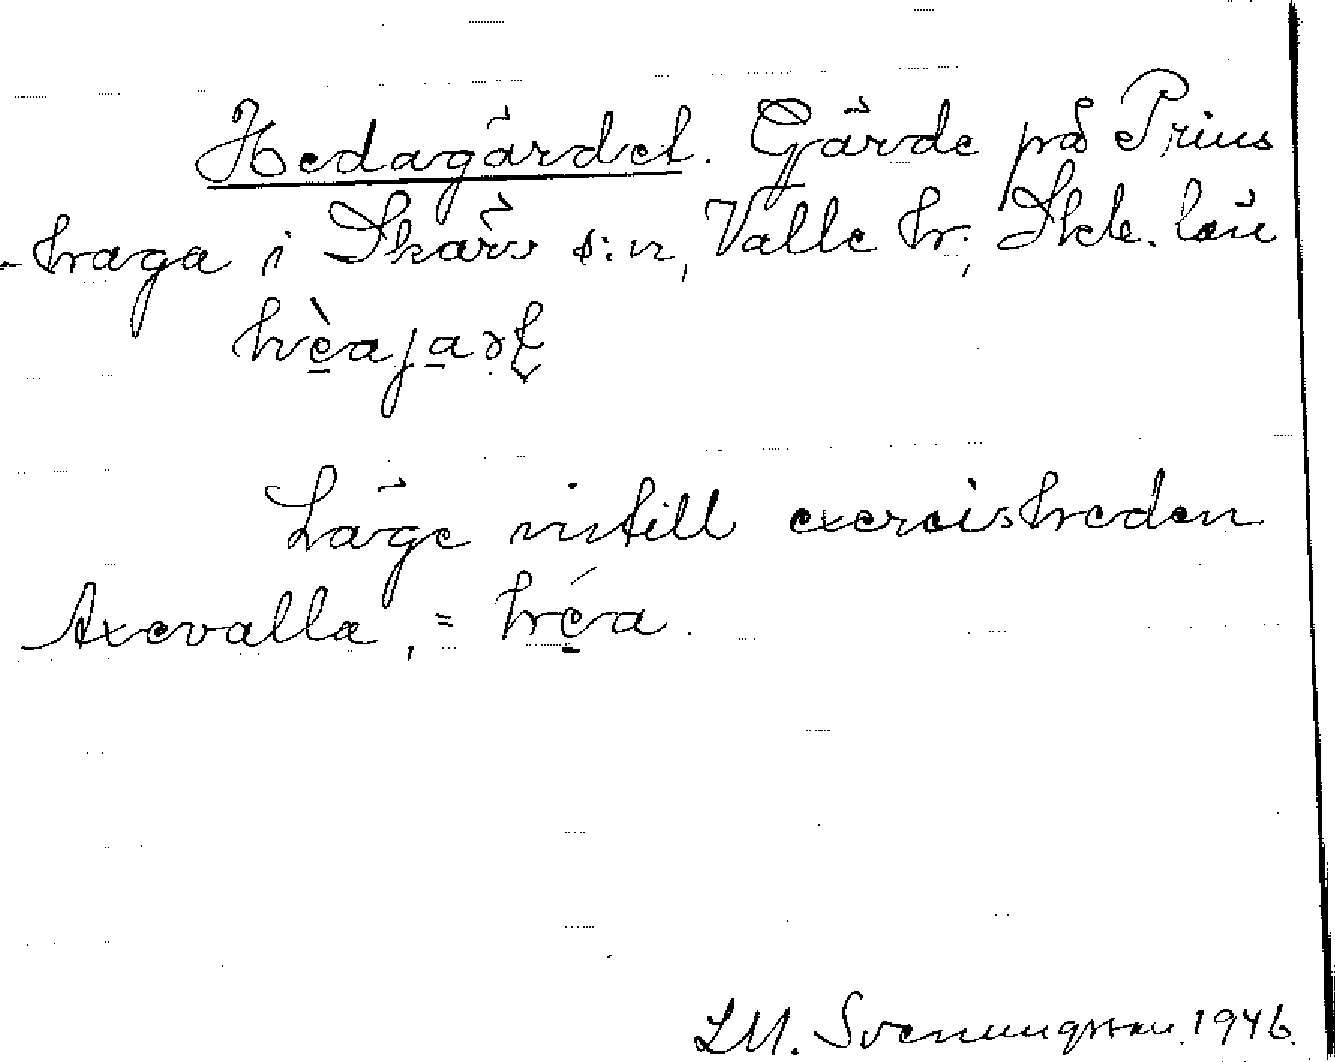 Hedagärdet. Gärde på Prins
-haga i Skärv s:n, Valle hr; Skb. län
Läge intill exercisheden
Axevalla, = hèa.
L.M. Svenungsson. 1946.